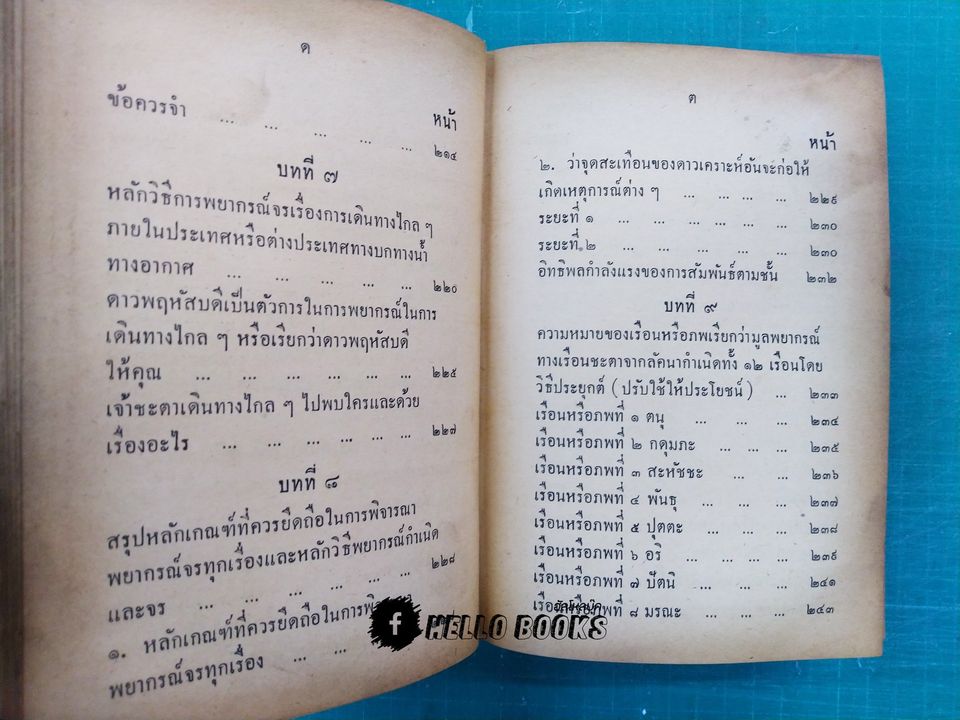 ด
หน้า
ข้อควรจำ ... ... ... ... ... ๒๑๔
บทที่ ๗
หลักวิธีการพยากรณ์จรเรื่องการเดินทางไกล ๆ
ภายในประเทศหรือต่างประเทศทางบกทางน้ำ
ทางอากาศ ... ... ... ... ... ๒๒๐
ดาวพฤหัสบดีเป็นตัวการในการพยากรณ์ในการ
เดินทางไกล ๆ หรือเรียกว่าดาวพฤหัสบดี
ให้คุณ ... ... ... ... ... ... ๒๒๕
เจ้าชะตาเดินทางไกล ๆ ไปพบใครและด้วย
เรื่องอะไร ... ... ... ... ... ... ๒๒๗
บทที่ ๘
สรุปหลักเกณฑ์ที่ควรยึดถือในการพิจารณา
พยากรณ์จรทุกเรื่องและหลักวิธีพยากรณ์กำเนิด
และจร ... ... ... ... ... ๒๒๘
๑. หลักเกณฑ์ที่ควรยึดถือในการ
พยากรณ์จรทุกเรื่อง ... ...
ต
หน้า
๒. ว่าจุดสะเทือนของดาวเคราะห์อันจะก่อให้
เกิดเหตุการณ์ต่าง ๆ ... ... ... ... ๒๒๙
ระยะที่ ๑ ... ... ... ... ... ... ๒๓๐
ระยะที่ ๒ ... ... ... ... ... ๒๓๐
อิทธิพลกำลังแรงของการสัมพันธ์ตามชั้น ๒๓๒
บทที่ ๙
ความหมายของเรือนหรือภพเรียกว่ามูลพยากรณ์
ทางเรือนชะตาจากลัคนากำเนิดทั้ง ๑๒ เรือนโดย
วิธีประยุกต์ (ปรับใช้ให้ประโยชน์) ... ๒๓๓
เรือนหรือภพที่ ๑ ตนุ ... ... ... ๒๓๔
เรือนหรือภพที่ ๒ กดุมภะ ... ... ... ๒๓๕
เรือนหรือภพที่ ๓ สะหัชชะ ... ... ๒๓๖
เรือนหรือภพที่ ๔ พันธุ ... ... ... ๒๓๗
เรือนหรือภพที่ ๕ ปุตตะ ... ... ... ๒๓๘
เรือนหรือภพที่ ๖ อริ ... ... ... ๒๓๙
เรือนหรือภพที่ ๗ ปัตนิ ... ... ... ๒๔๑
เรือนหรือภพที่ ๘ มรณะ ... ... ๒๔๓
ฮัลโหลบุ๊ค
f HELLO BOOKS